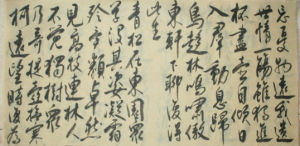 忘憂物遠我遺
世情一觴雖獨進
杯盡壺自傾日
入羣動息歸
鳥趨林鳴嘯傲
東軒下聊復得
此生
青松在東園眾
草沒其姿凝霜
殄異類卓然
見高枝連林人
不覺獨樹眾
乃奇提壺撫寒
柯遠望時復為